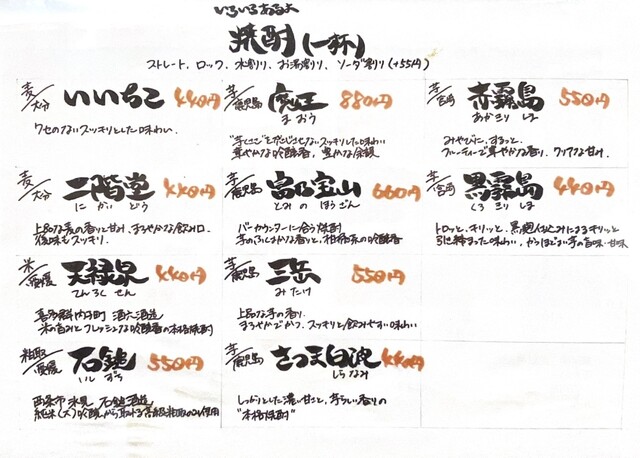 いろいろあるよ
焼酎(一杯)
ストレート、ロック、水割り、お湯割り、ソーダ割り(+55円)
麦/大分 いいちこ 440円
クセのないスッキリとした味わい。
麦/大分 二階堂 440円
にかいどう
上品な麦の香りと甘み、まろやかな飲み口。
後味もスッキリ。
米/愛媛 天緑泉 440円
てんろくせん
喜多郡内子町 酒六酒造
米の旨みとフレッシュな吟醸香の本格焼酎
粕取/愛媛 石鎚 550円
いしづち
西条市氷見 石鎚酒造
純米(大)吟醸から取れる高級粕取のみ使用
芋/鹿児島 魔王 880円
まおう
"芋くささ"を感じさせないスッキリした味わい
華やかな吟醸香、豊かな余韻
芋/鹿児島 富乃宝山 660円
とみのほうざん
バーカウンターに合う焼酎
芋のふくよかな香りと、柑橘系の吟醸香
芋/鹿児島 三岳 550円
みたけ
上品な芋の香り。
まろやかでかつ、スッキリと飲みやすい味わい
芋/鹿児島 さつま白波 440円
しらなみ
しっかりとした濃い甘さと、芋らしい香りの
"本格焼酎"
芋/宮崎 赤霧島 550円
あかきりしま
みやびに、するっと。
フルーティーで華やかな香り。クリアな甘み。
芋/宮崎 黒霧島 440円
くろきりしま
トロッと、キリッと。黒麹仕込みによるキリッと
引き締まった味わい、かつほどよい芋の旨味・甘味